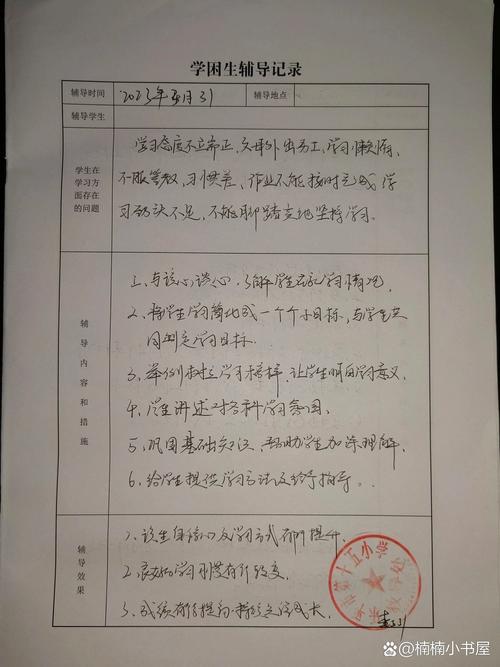 学困生辅导记录
辅导时间 2023年5月31 辅导地点
辅导学生
学生在
学习方
面存在
的问题
学习态度不端正,父母外出务工,学习懒惰,
不服管教,习惯差,作业不能按时完成 学
习劲头不足,不能脚踏实地坚持学习.
辅导内容和措施
1、与谈心谈心,了解学生在家学习情况.
2、将学生学习简化成一个个小目标,与学生共
同制定学习目标.
3、举例树立学习榜样,让学生明白学习意义.
4、学生讲述对各科学习氛围.
5、巩固基础知识,帮助学生加深理解.
6、给学生提供学习方法及给予指导.
辅导效果
1、该生自信心及学习方式有所提升.
2、学习有改变.
3、成绩有提高
市第十五小学
教学处
百家号/楠楠小书屋